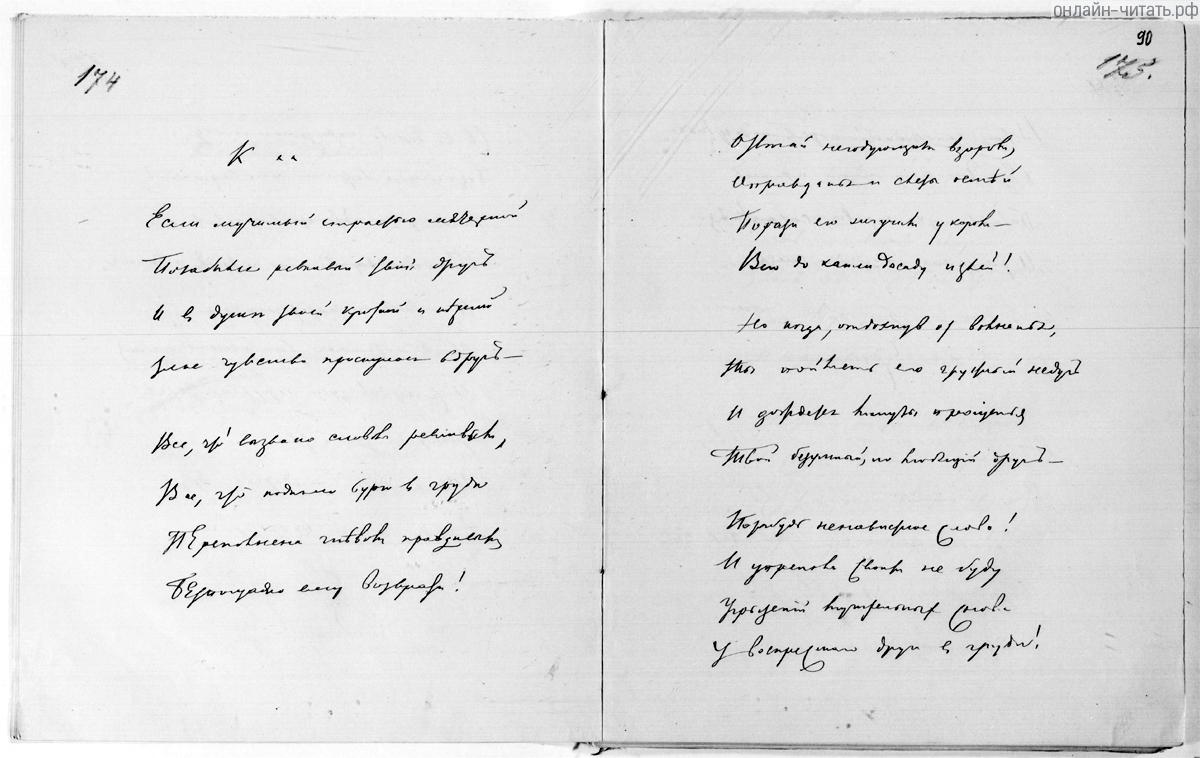 онлайн-читать.рф
90
174
175.
К **
Если мучимый страстью мятежной
Позабылся ревнивый твой другъ
И въ душѣ твоей кроткой и нѣжной
Злое чувство проснулося вдругъ —
Все, что вызвано словом ревнивым,
Все, что подняло бурю в груди
Переполнена гнѣвом правдивым
Безпощадно ему возврати!
Отвѣчай негодующим взором,
Оправданья и слезы осмѣй
Порази его жгучим укором —
Всю до капли досаду излей!
Но когда, отдохнув от волненья,
Ты поймешь его грустный недугъ
И дождется минуты прощенья
Твой безумный, но любящий другъ —
Позабудь ненавистное слово!
И упреком своим не буди
Угрызений мучительных снова
У воскресшаго друга в груди!